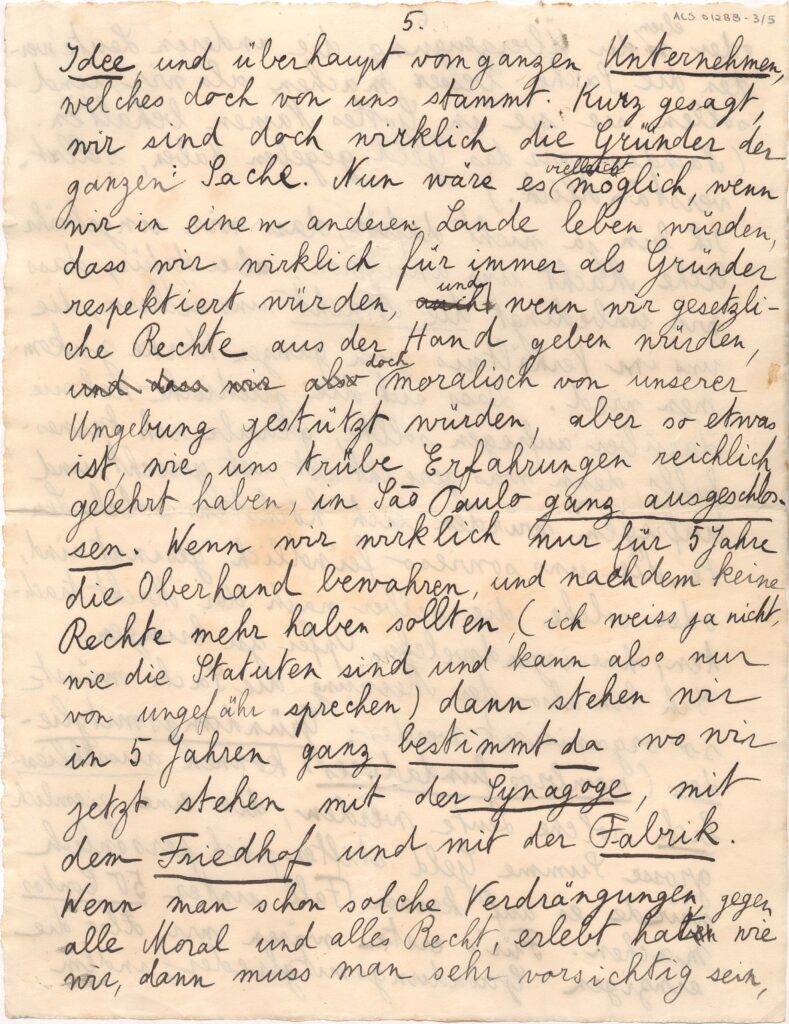 ALS 01288-3/5
5.
Idee, und überhaupt vom ganzen Unternehmen,
welches doch von uns stammt. Kurz gesagt,
wir sind doch wirklich die Gründer der
ganzen Sache. Nun wäre es vielleicht möglich, wenn
wir in einem anderen Lande leben würden,
dass wir wirklich für immer als Gründer
respektiert würden, auch und wenn wir gesetzli-
che Rechte aus der Hand geben würden,
und dass wir also doch moralisch von unserer
Umgebung gestützt würden, aber so etwas
ist, wie uns trübe Erfahrungen reichlich
gelehrt haben, in São Paulo ganz ausgeschlos-
sen. Wenn wir wirklich nur für 5 Jahre
die Oberhand bewahren, und nachdem keine
Rechte mehr haben sollten, (ich weiss ja nicht,
wie die Statuten sind und kann also nur
von ungefähr sprechen) dann stehen wir
in 5 Jahren ganz bestimmt da wo wir
jetzt stehen mit der Synagoge, mit
dem Friedhof und mit der Fabrik.
Wenn man schon solche Verdrängungen, gegen
alle Moral und alles Recht, erlebt hat wie
wir, dann muss man sehr vorsichtig sein,